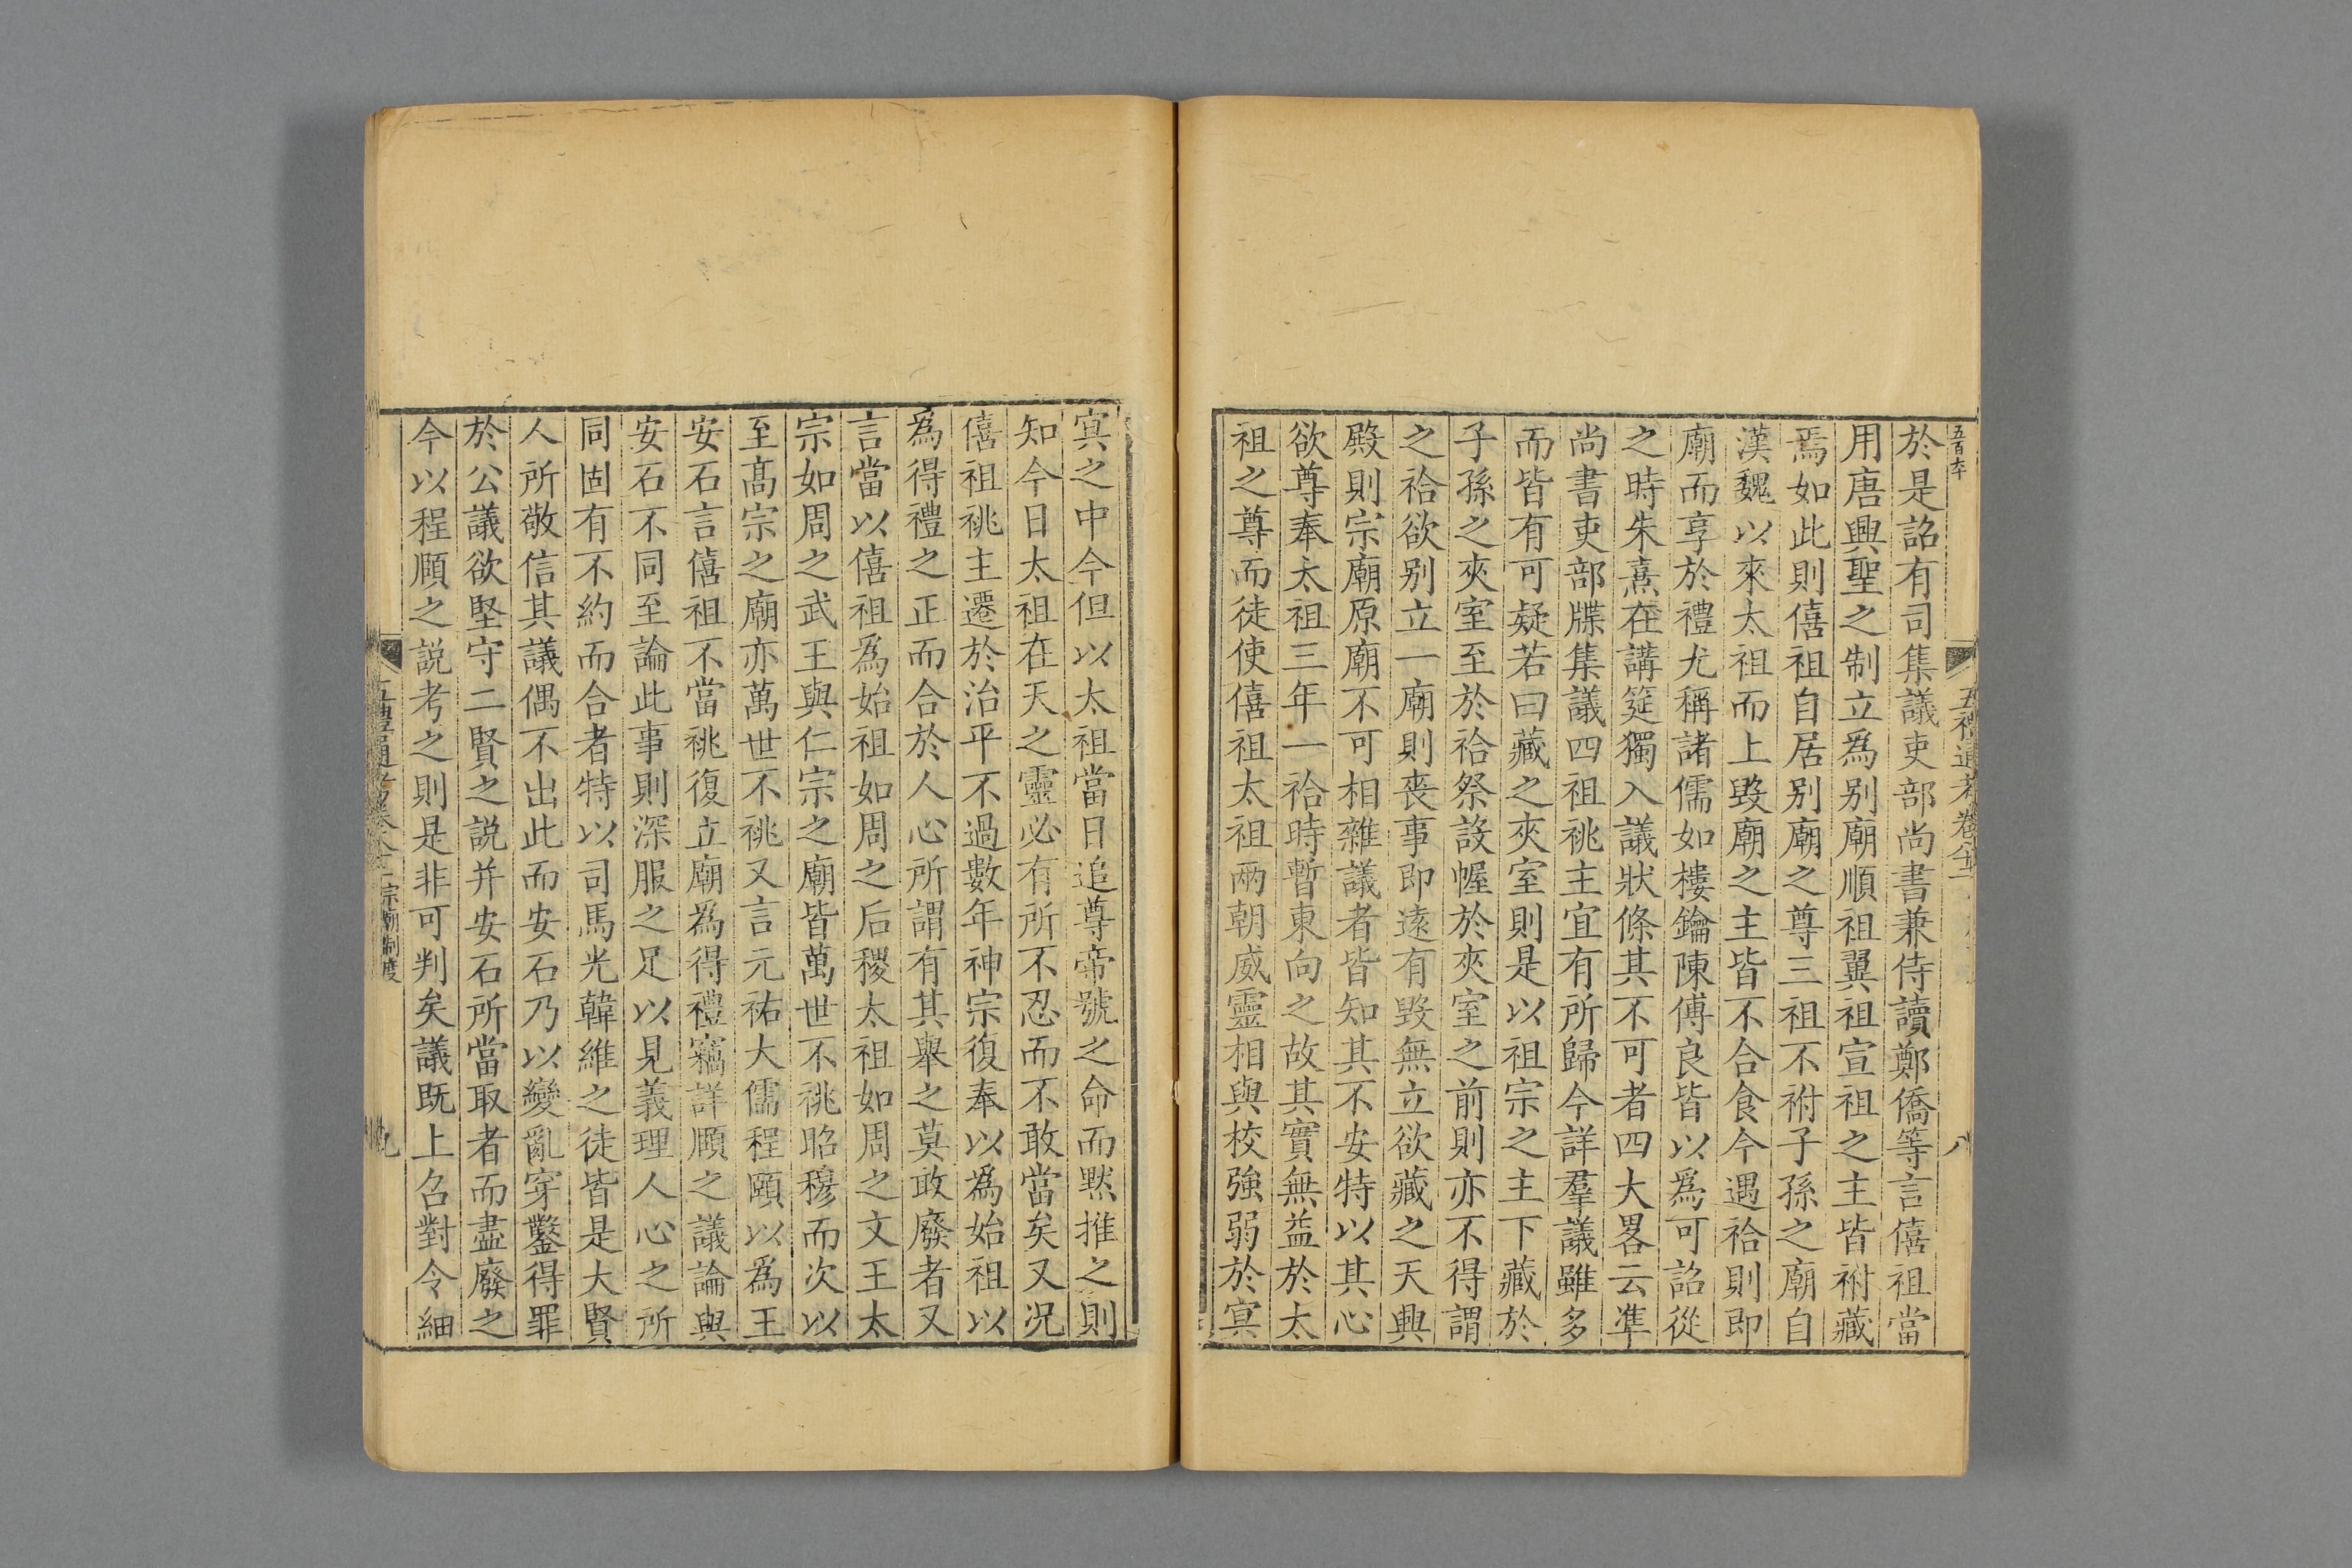 五百六
五禮通考卷八十一
八
於是詔有司集議吏部尚書兼侍讀鄭僑等言僖祖當
用唐興聖之制立爲别廟順祖翼祖宣祖之主皆祔藏
焉如此則僖祖自居别廟之尊三祖不祔子孫之廟自
漢魏以來太祖而上毀廟之主皆不合食今遇祫則即
廟而享於禮尤稱諸儒如樓鑰陳傅良皆以爲可詔從
之時朱熹在講筵獨入議狀條其不可者四大畧云凖
尚書吏部牒集議四祖祧主宜有所歸今詳羣議雖多
而皆有可疑若曰藏之夾室則是以祖宗之主下藏於
子孫之夾室至於祫祭設幄於夾室之前則亦不得謂
之祫欲别立一廟則喪事即遠有毀無立欲藏之天興
殿則宗廟原廟不可相雜議者皆知其不安特以其心
欲尊奉太祖三年一祫時暫東向之故其實無益於太
祖之尊而徒使僖祖太祖兩朝威靈相與校強弱於冥
冥之中今但以太祖當日追尊帝號之命而黙推之則
知今日太祖在天之靈必有所不忍而不敢當矣又况
僖祖祧主遷於治平不過數年神宗復奉以爲始祖以
爲得禮之正而合於人心所謂有其舉之莫敢廢者又
言當以僖祖爲始祖如周之后稷太祖如周之文王太
宗如周之武王與仁宗之廟皆萬世不祧昭穆而次以
至髙宗之廟亦萬世不祧又言元祐大儒程頤以爲王
安石言僖祖不當祧復立廟爲得禮竊詳頤之議論與
安石不同至論此事則深服之足以見義理人心之所
同固有不約而合者特以司馬光韓維之徒皆是大賢
人所敬信其議偶不出此而安石乃以變亂穿鑿得罪
於公議欲堅守二賢之説并安石所當取者而盡廢之
今以程頤之説考之則是非可判矣議既上召對令細
五禮通考卷八十一 宗廟制度
九